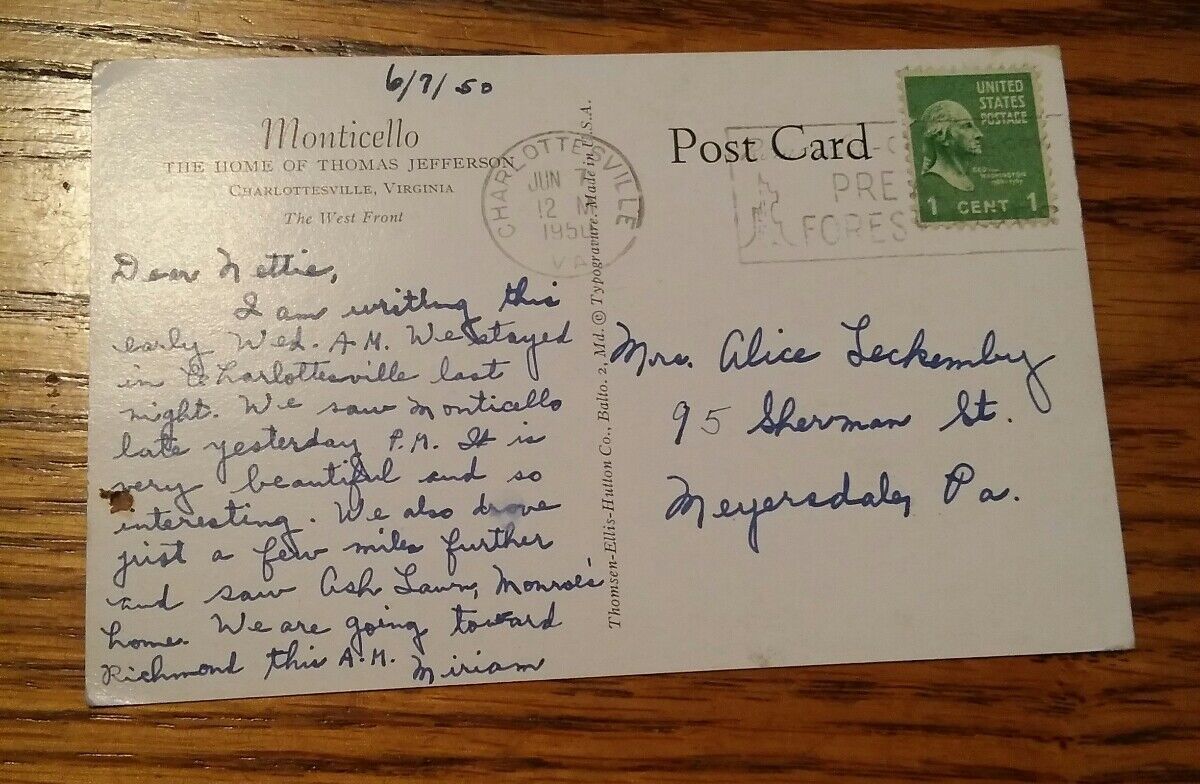 6/7/50
Monticello
THE HOME OF THOMAS JEFFERSON
CHARLOTTESVILLE, VIRGINIA
The West Front
Dear Nettie,
I am writing this
early Wed. A.M. We stayed
in Charlottesville last
night. We saw Monticello
late yesterday P.M. It is
very beautiful and so
interesting. We also drove
just a few miles further
and saw Ash Lawn, Monroe's
home. We are going toward
Richmond this A.M. Miriam
Thomsen-Ellis-Hutton Co., Balto. 2, Md. © Typogravure. Made in U.S.A.
CHARLOTTESVILLE
JUN 7
12 M
1950
VA
Post Card
PRE
FORES
UNITED
STATES
POSTAGE
GEORGE
WASHINGTON
1 CENT 1
Mrs. Alice Leckemby
95 Sherman St.
Meyersdale, Pa.